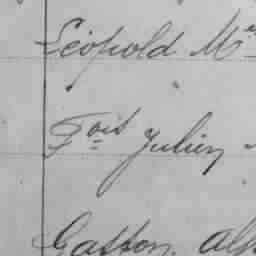 Léopold Mie
Fois Julien
Gaston Alp